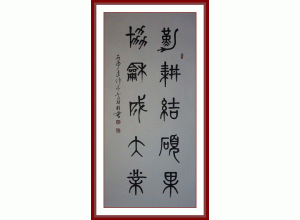 勤耕結碩果
協龢成大業